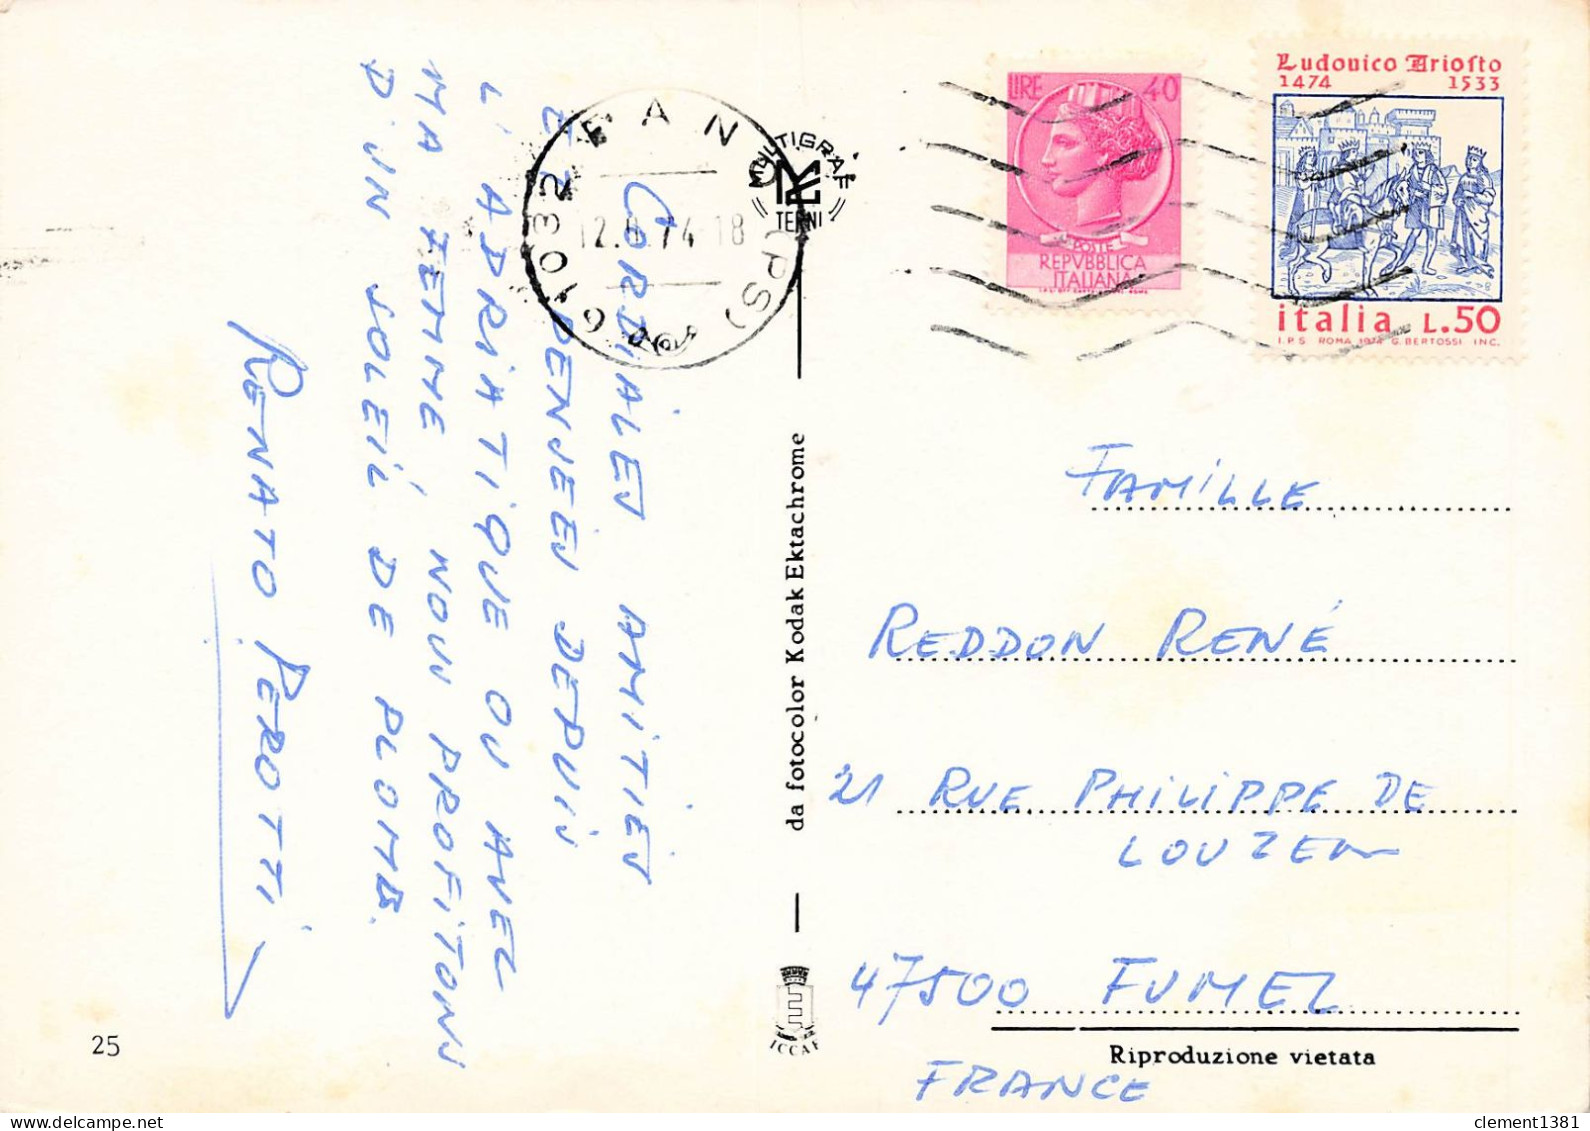 CORDIALES AMITIES
ET PENSEES DEPUIS
L'ADRIATIQUE OU AVEC
MA FEMME NOUS PROFITONS
D'UN SOLEIL DE PLOMB.
RENATO PEROTTI
25
61032 FANO (PS)
74 18
MULTIGRAF
TERNI
da fotocolor Kodak Ektachrome
ICCAF
LIRE 40
POSTE
REPVBBLICA
ITALIANA
Ludovico Ariosto
1474 1533
italia L.50
I.P.S. ROMA 1974 G. BERTOSSI INC.
FAMILLE
REDDON RENÉ
21 RUE PHILIPPE DE
47500 FUMEL
Riproduzione vietata
FRANCE
clement1381